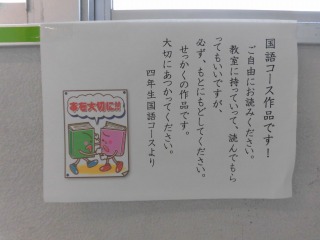 国語コース作品です!
ご自由にお読みください。
教室に持っていって、読んでもら
ってもいいですが、
必ず、もとにもどしてください。
せっかくの作品です。
大切にあつかってください。
四年生国語コースより
本を大切に!!